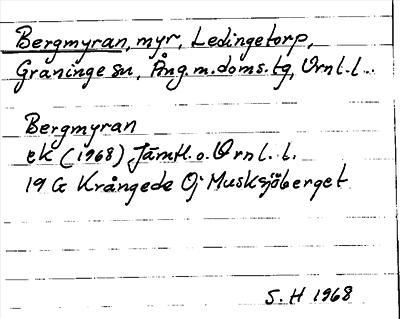 Bergmyran, myr, Ledingetorp,
Graninge sn, Ång. m. doms. tg, Vrnl. l.
Bergmyran
ek (1968) Jämtl. o. Vrnl. l.
19 G Krångede Oj Musksjöberget
S. H 1968